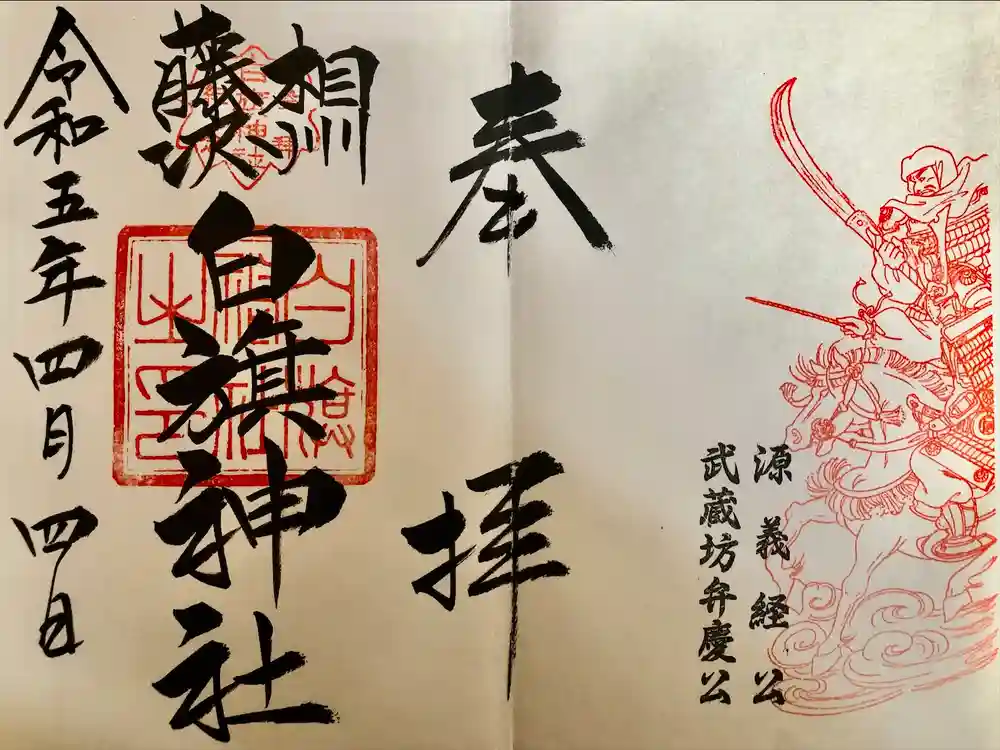 源義経公
武蔵坊弁慶公
奉拝
相州
藤沢
白旗神社
白旗神社之印
令和五年四月四日